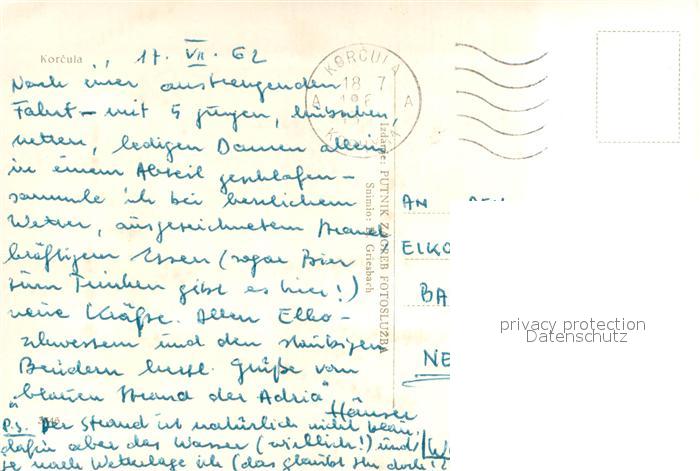 Korčula
17. VII. 62
Nach einer anstrengenden
Fahrt – mit 5 jungen, hübschen,
netten, ledigen Damen allein
in einem Abteil geschlafen –
sammle ich bei herrlichem
Wetter, ausgezeichnetem Strand
kräftigem Essen (sogar Bier
zum Trinken gibt es hier!)
neue Kräfte. Allen Elko-
schwestern und den
Brüdern herzl. Grüße vom
"blauen Strand der Adria"
Häuser
P.S. Der Strand ist natürlich nicht blau,
dafür aber das Wasser (wirklich!) und
je nach Wetterlage ich (das glaubt Ihr doch!
KORČULA
18 7
A A
Izdanje: PUTNIK ZAGREB FOTOSLUŽBA
Snimio: Griesbach
AN
ELKO
BA
NE
privacy protection
Datenschutz